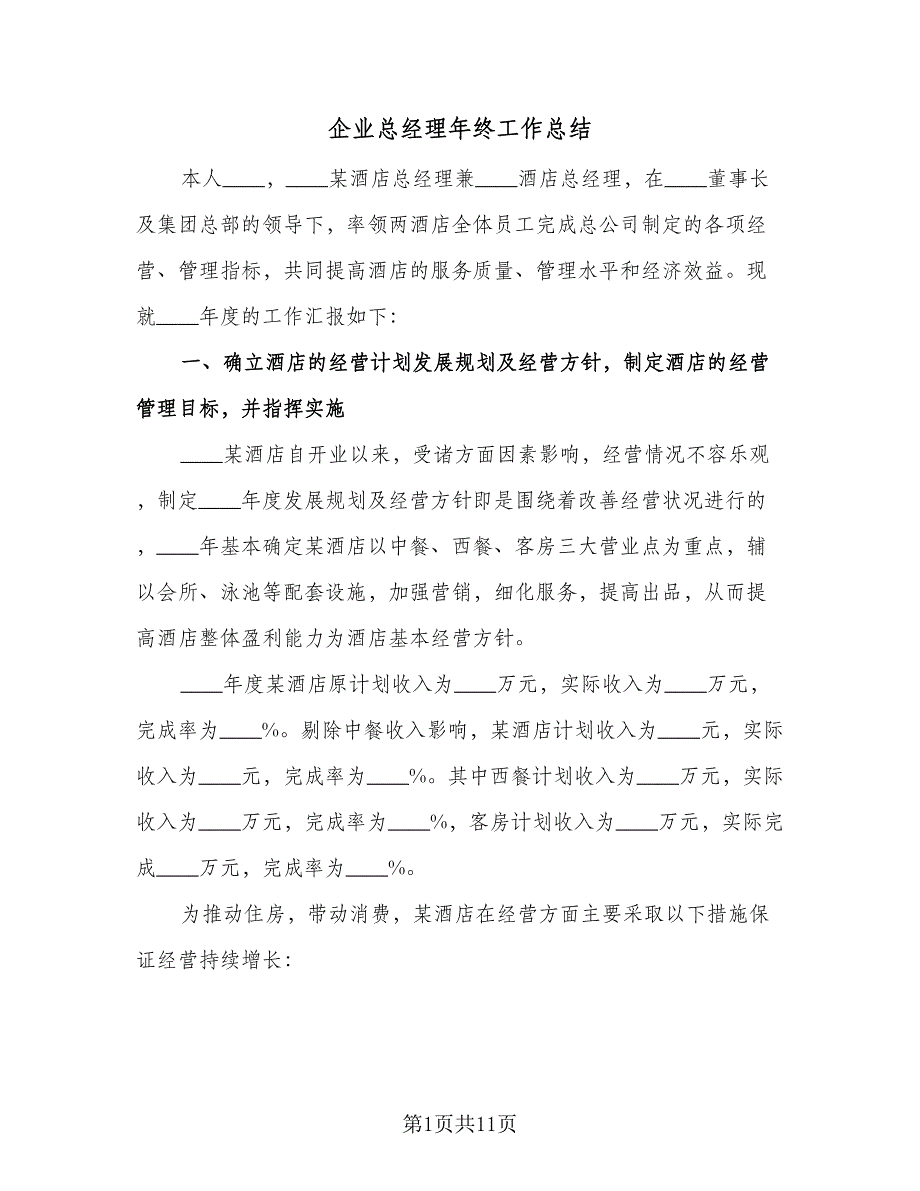 企业总经理年终工作总结
本人____，____某酒店总经理兼____酒店总经理，在____董事长
及集团总部的领导下，率领两酒店全体员工完成总公司制定的各项经
营、管理指标，共同提高酒店的服务质量、管理水平和经济效益。现
就____年度的工作汇报如下：
一、确立酒店的经营计划发展规划及经营方针，制定酒店的经营
管理目标，并指挥实施
____某酒店自开业以来，受诸方面因素影响，经营情况不容乐观
，制定____年度发展规划及经营方针即是围绕着改善经营状况进行的
，____年基本确定某酒店以中餐、西餐、客房三大营业点为重点，辅
以会所、泳池等配套设施，加强营销，细化服务，提高出品，从而提
高酒店整体盈利能力为酒店基本经营方针。
____年度某酒店原计划收入为____万元，实际收入为____万元，
完成率为____%。剔除中餐收入影响，某酒店计划收入为____元，实际
收入为____元，完成率为____%。其中西餐计划收入为____万元，实际
收入为____万元，完成率为____%，客房计划收入为____万元，实际完
成____万元，完成率为____%。
为推动住房，带动消费，某酒店在经营方面主要采取以下措施保
证经营持续增长：
第1页共11页